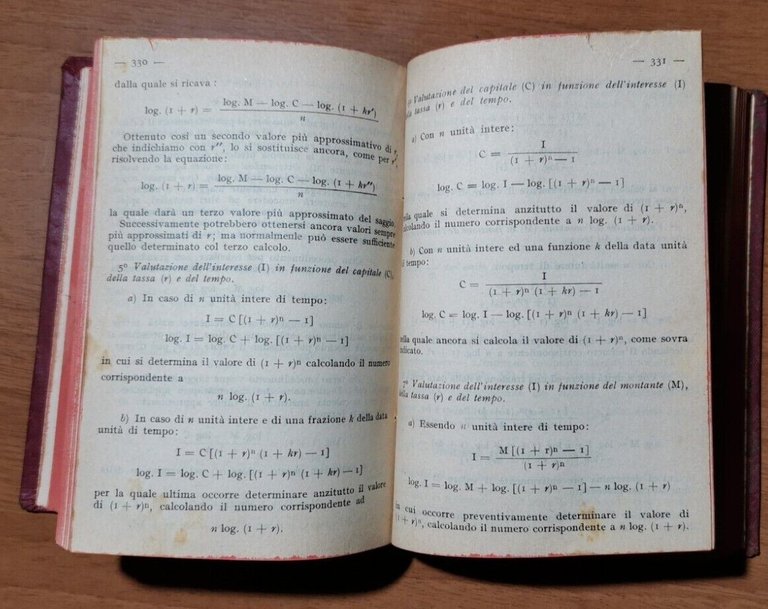 — 330 —
dalla quale si ricava :
log. (1 + r) = log. M — log. C — log. (1 + kr′) / n
Ottenuto così un secondo valore più approssimativo di r,
che indichiamo con r″, lo si sostituisce ancora, come per r′,
risolvendo la equazione:
log. (1 + r) = log. M — log. C — log. (1 + kr″) / n
la quale darà un terzo valore più approssimato del saggio.
Successivamente potrebbero ottenersi ancora valori sempre
più approssimati di r; ma normalmente può essere sufficiente
quello determinato col terzo calcolo.
5º Valutazione dell'interesse (I) in funzione del capitale (C),
della tassa (r) e del tempo.
a) In caso di n unità intere di tempo:
I = C [(1 + r)ⁿ — 1]
log. I = log. C + log. [(1 + r)ⁿ — 1]
in cui si determina il valore di (1 + r)ⁿ calcolando il numero
corrispondente a
n log. (1 + r).
b) In caso di n unità intere e di una frazione k della data
unità di tempo:
I = C [(1 + r)ⁿ (1 + kr) — 1]
log. I = log. C + log. [(1 + r)ⁿ (1 + kr) — 1]
per la quale ultima occorre determinare anzitutto il valore
di (1 + r)ⁿ, calcolando il numero corrispondente ad
n log. (1 + r).
— 331 —
Valutazione del capitale (C) in funzione dell'interesse (I)
tassa (r) e del tempo.
a) Con n unità intere:
C = I / (1 + r)ⁿ — 1
log. C = log. I — log. [(1 + r)ⁿ — 1]
quale si determina anzitutto il valore di (1 + r)ⁿ,
calcolando il numero corrispondente a n log. (1 + r).
b) Con n unità intere ed una funzione k della data unità
di tempo:
C = I / (1 + r)ⁿ (1 + kr) — 1
log. C = log. I — log. [(1 + r)ⁿ (1 + kr) — 1]
nella quale ancora si calcola il valore di (1 + r)ⁿ, come sovra
indicato.
7º Valutazione dell'interesse (I) in funzione del montante (M),
della tassa (r) e del tempo.
a) Essendo n unità intere di tempo:
I = M [(1 + r)ⁿ — 1] / (1 + r)ⁿ
log. I = log. M + log. [(1 + r)ⁿ — 1] — n log. (1 + r)
in cui occorre preventivamente determinare il valore di
(1 + r)ⁿ, calcolando il numero corrispondente a n log. (1 + r).